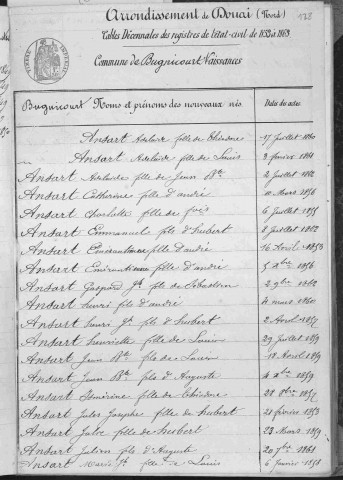 Arrondissement de Douai (Nord)
128
Tables Décennales des registres de l'état-civil de 1853 à 1863.
Commune de Bugnicourt Naissances
Bugnicourt Noms et prénoms des nouveaux nés Date des actes
Ansart Adelaïde fille de Théodore 17 Juillet 1860
Ansart Adelaïde fille de Louis 3 février 1861
Ansart Adelaïde fille de Jean Bte 2 Juillet 1862
Ansart Catherine fille d'andré 11 Mars 1856
Ansart Charlotte fille de 6 Juillet 1855
Ansart Emmanuel fils d'hubert 8 Juillet 1862
Ansart Emérantienne fille d'andré 16 Avril 1853
Ansart Emérantienne fille d'andré 5 Xbre 1856
Ansart Gaspard Jh fils de Sébastien 2 9bre 1862
Ansart henri fils d'andré 4 mars 1860
Ansart henri Jh fils d'hubert 2 Avril 1857
Ansart henriette fille de Louis 29 Juillet 1859
Ansart Jean Bte fils de Louis 18 Avril 1859
Ansart Jean Bte fils d'Auguste 4 Xbre 1859
Ansart fille de Théodore 28 8bre 1857
Ansart Jules Joseph fils de hubert 21 février 1853
Ansart Julie fille de hubert 23 Mars 1859
Ansart Julien fils d'Auguste 20 7bre 1861
Ansart Marie Jh fille de Louis 6 Janvier 1858